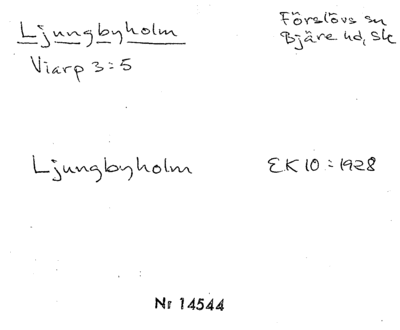 Ljungbyholm
Förslövs sn
Bjäre hd, Sk
Viarp 3:5
Ljungbyholm
EK 10 : 1928
Nr 14544